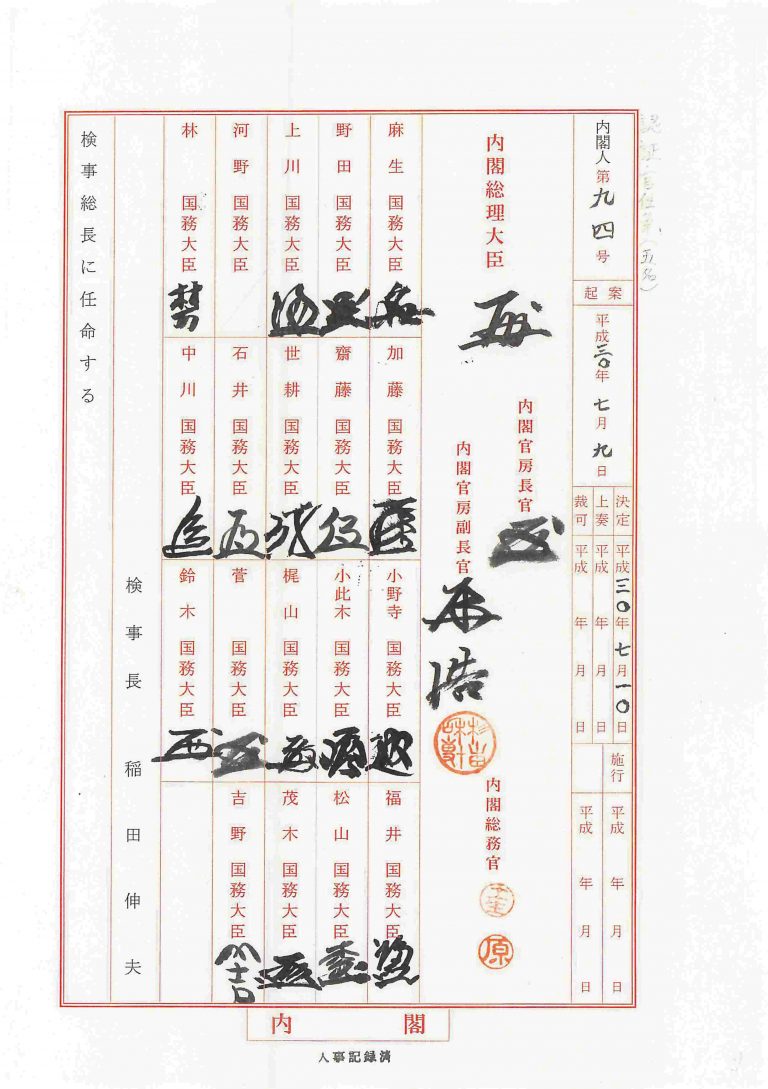 認証官任免(五名)
内閣人第九四号
起案 平成三〇年七月九日
決定 平成三〇年七月一〇日
上奏 平成 年 月 日
裁可 平成 年 月 日
施行 平成 年 月 日
平成 年 月 日
内閣総理大臣
内閣官房長官
内閣官房副長官
内閣総務官
原
麻生 国務大臣
野田 国務大臣
上川 国務大臣
河野 国務大臣
林 国務大臣
加藤 国務大臣
齋藤 国務大臣
世耕 国務大臣
石井 国務大臣
中川 国務大臣
小野寺 国務大臣
小此木 国務大臣
梶山 国務大臣
菅 国務大臣
鈴木 国務大臣
福井 国務大臣
松山 国務大臣
茂木 国務大臣
吉野 国務大臣
検事長 稲田伸夫
検事総長に任命する
内閣
人事記録済